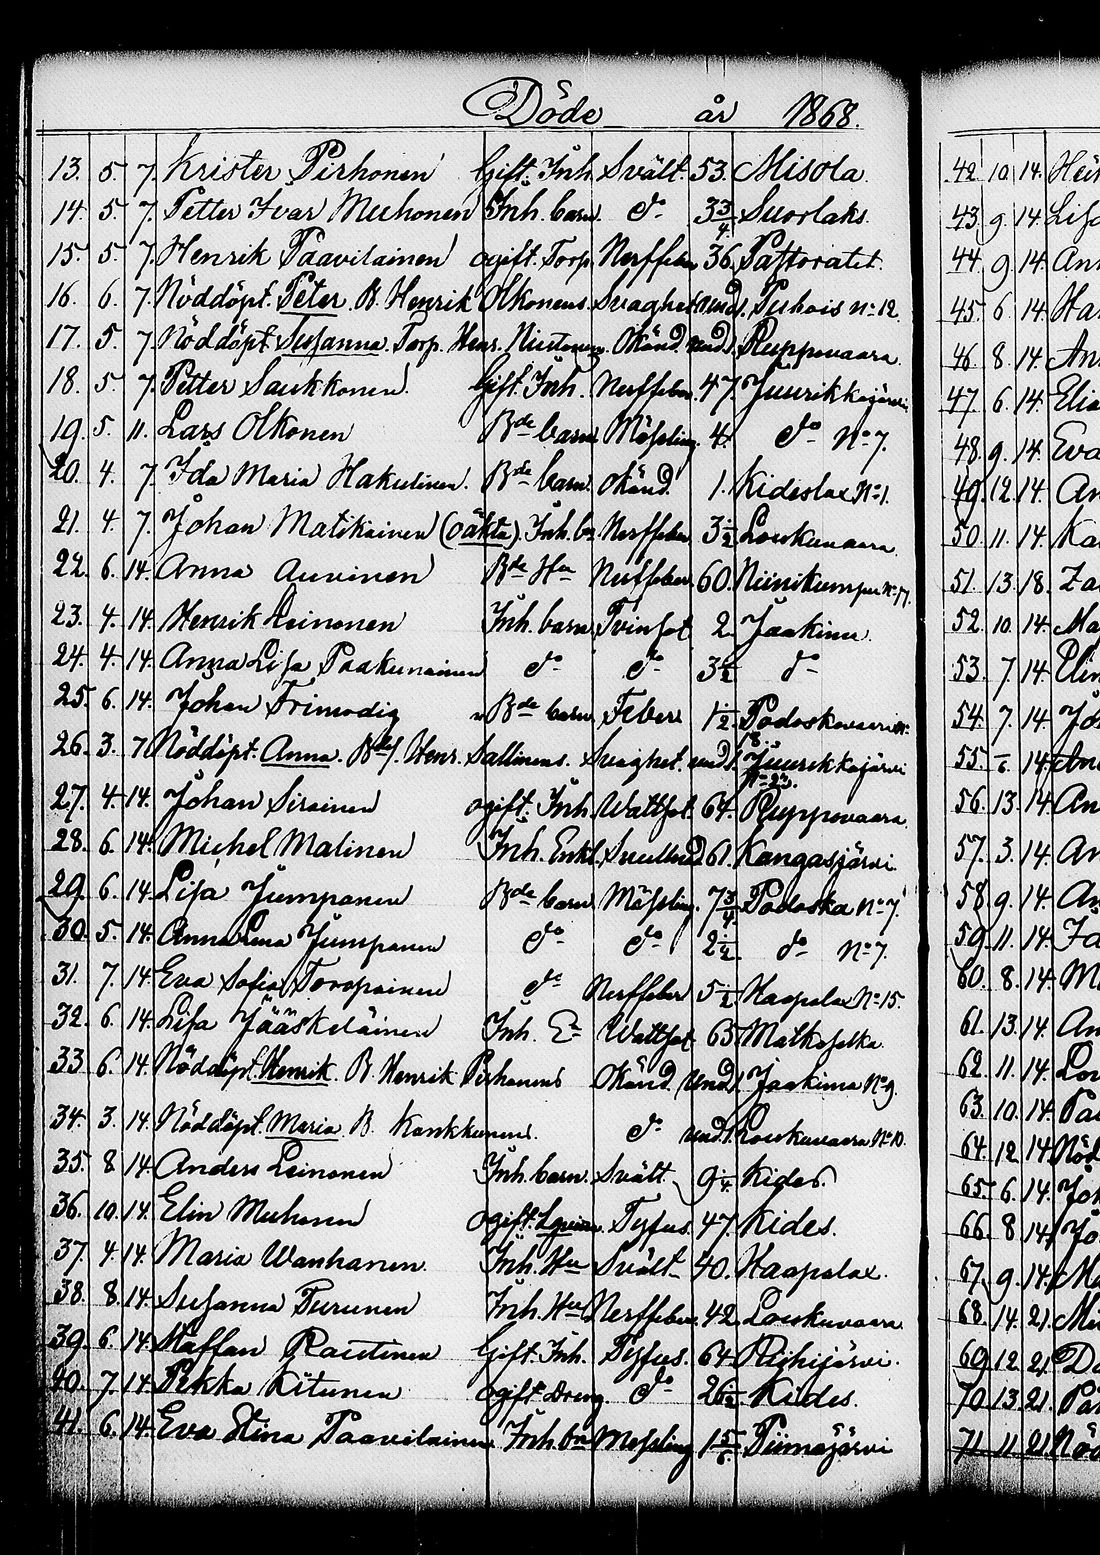 Döde år 1868.
13. 5. 7. Krister Pirhonen Gift. Inh. Svält. 53. Misola
14. 5. 7. Petter Ivar Muhonen Inh. barn. do 3 3/4. Suorlaks.
15. 5. 7. Henrik Paavilainen ogift. Torp. Nerffeber 36. Pastoratet.
16. 6. 7. Nöddöpt. Peter. B. Henrik Olkonens. Svaghet und. 1. Puhois No 12.
17. 5. 7. Nöddöpt Susanna. Torp. Henr. Okänd. und. 1. Ruppovaara.
18. 5. 7. Petter Saukkonen. Gift. Inh. Nerffeber. 47. Juurikkajärvi
19. 5. 11. Lars Olkonen Bde barn. Mässling. 4. do No 7.
20. 4. 7. Ida Maria Hakulinen. Bde barn. Okänd. 1. Kideslax No 1.
21. 4. 7. Johan Matikainen (oäkta). Inh. bn Nerffeber. 3 1/2 Loukuvaara.
22. 6. 14. Anna Auvinen Bde Hu Nerffeber. 60. Niinikumpu No 17.
23. 4. 14. Henrik Leinonen Inh. barn. Tvinsot 2. Jaakima.
24. 4. 14. Anna Lisa Paakunainen do do 3 1/2 do
25. 6. 14. Johan Frimodig Bde barn. Feber. 1 1/2. Podoskavaara No 8
26. 3. 7. Nöddöpt. Anna. Bdes. Henr. Sallinens. Svaghet. und. 1. Juurikkajärvi No 23.
27. 4. 14. Johan Sirainen ogift. Inh. Wattsot. 64. Ruppovaara.
28. 6. 14. Michel Malinen Inh. Enkl. 61. Kangasjärvi
29. 6. 14. Lisa Jumpanen Bde barn. Mässling. 7 3/4. Podoska No 7.
30. 5. 14. Anna Lena Jumpanen do do 2 1/2. do No 7.
31. 7. 14. Eva Sofia Toropainen do Nerffeber 5 1/2 Haapalax No 15.
32. 6. 14. Lisa Jääskeläinen Inh. Ea Wattsot 63. Matkaselka.
33. 6. 14. Nöddöpt. Henrik. B. Henrik Pirhonens Okänd. und. 1. Jaakima No 9.
34. 3. 14. Nöddöpt. Maria. B. Konkkunens. do und. 1. Loukuvaara No 10.
35. 8. 14. Anders Leinonen Inh. barn. Svält. 9 1/4. Kides.
36. 10. 14. Elin Muhonen ogift. Tyfus. 47. Kides.
37. 4. 14. Maria Wanhanen. Inh. Hu Svält 40. Haapalax.
38. 8. 14. Susanna Turunen Inh. Hu Nerffeber. 42. Loukuvaara
39. 6. 14. Staffan Rautinen Gift. Inh. Tyfus. 64. Riihijärvi.
40. 7. 14. Pekka Kitunen ogift. Dreng. do 26 1/2 Kides.
41. 6. 14. Eva Stina Paavilainen Inh. bn Messling 1 5/6. Piimäjärvi
42. 10. 14.
43. 9. 14. Lisa
44. 9. 14.
45. 6. 14.
46. 8. 14.
47. 6. 14.
48. 9. 14. Eva
49. 12. 14.
50. 11. 14.
51. 13. 18.
52. 10. 14.
53. 7. 14.
54. 7. 14.
55. 6. 14.
56. 13. 14.
57. 3. 14.
58. 9. 14.
59. 11. 14.
60. 8. 14.
61. 13. 14.
62. 11. 14.
63. 10. 14.
64. 12. 14.
65. 6. 14.
66. 8. 14.
67. 9. 14.
68. 14. 21.
69. 12. 21.
70. 13. 21.
71. 11. 21.